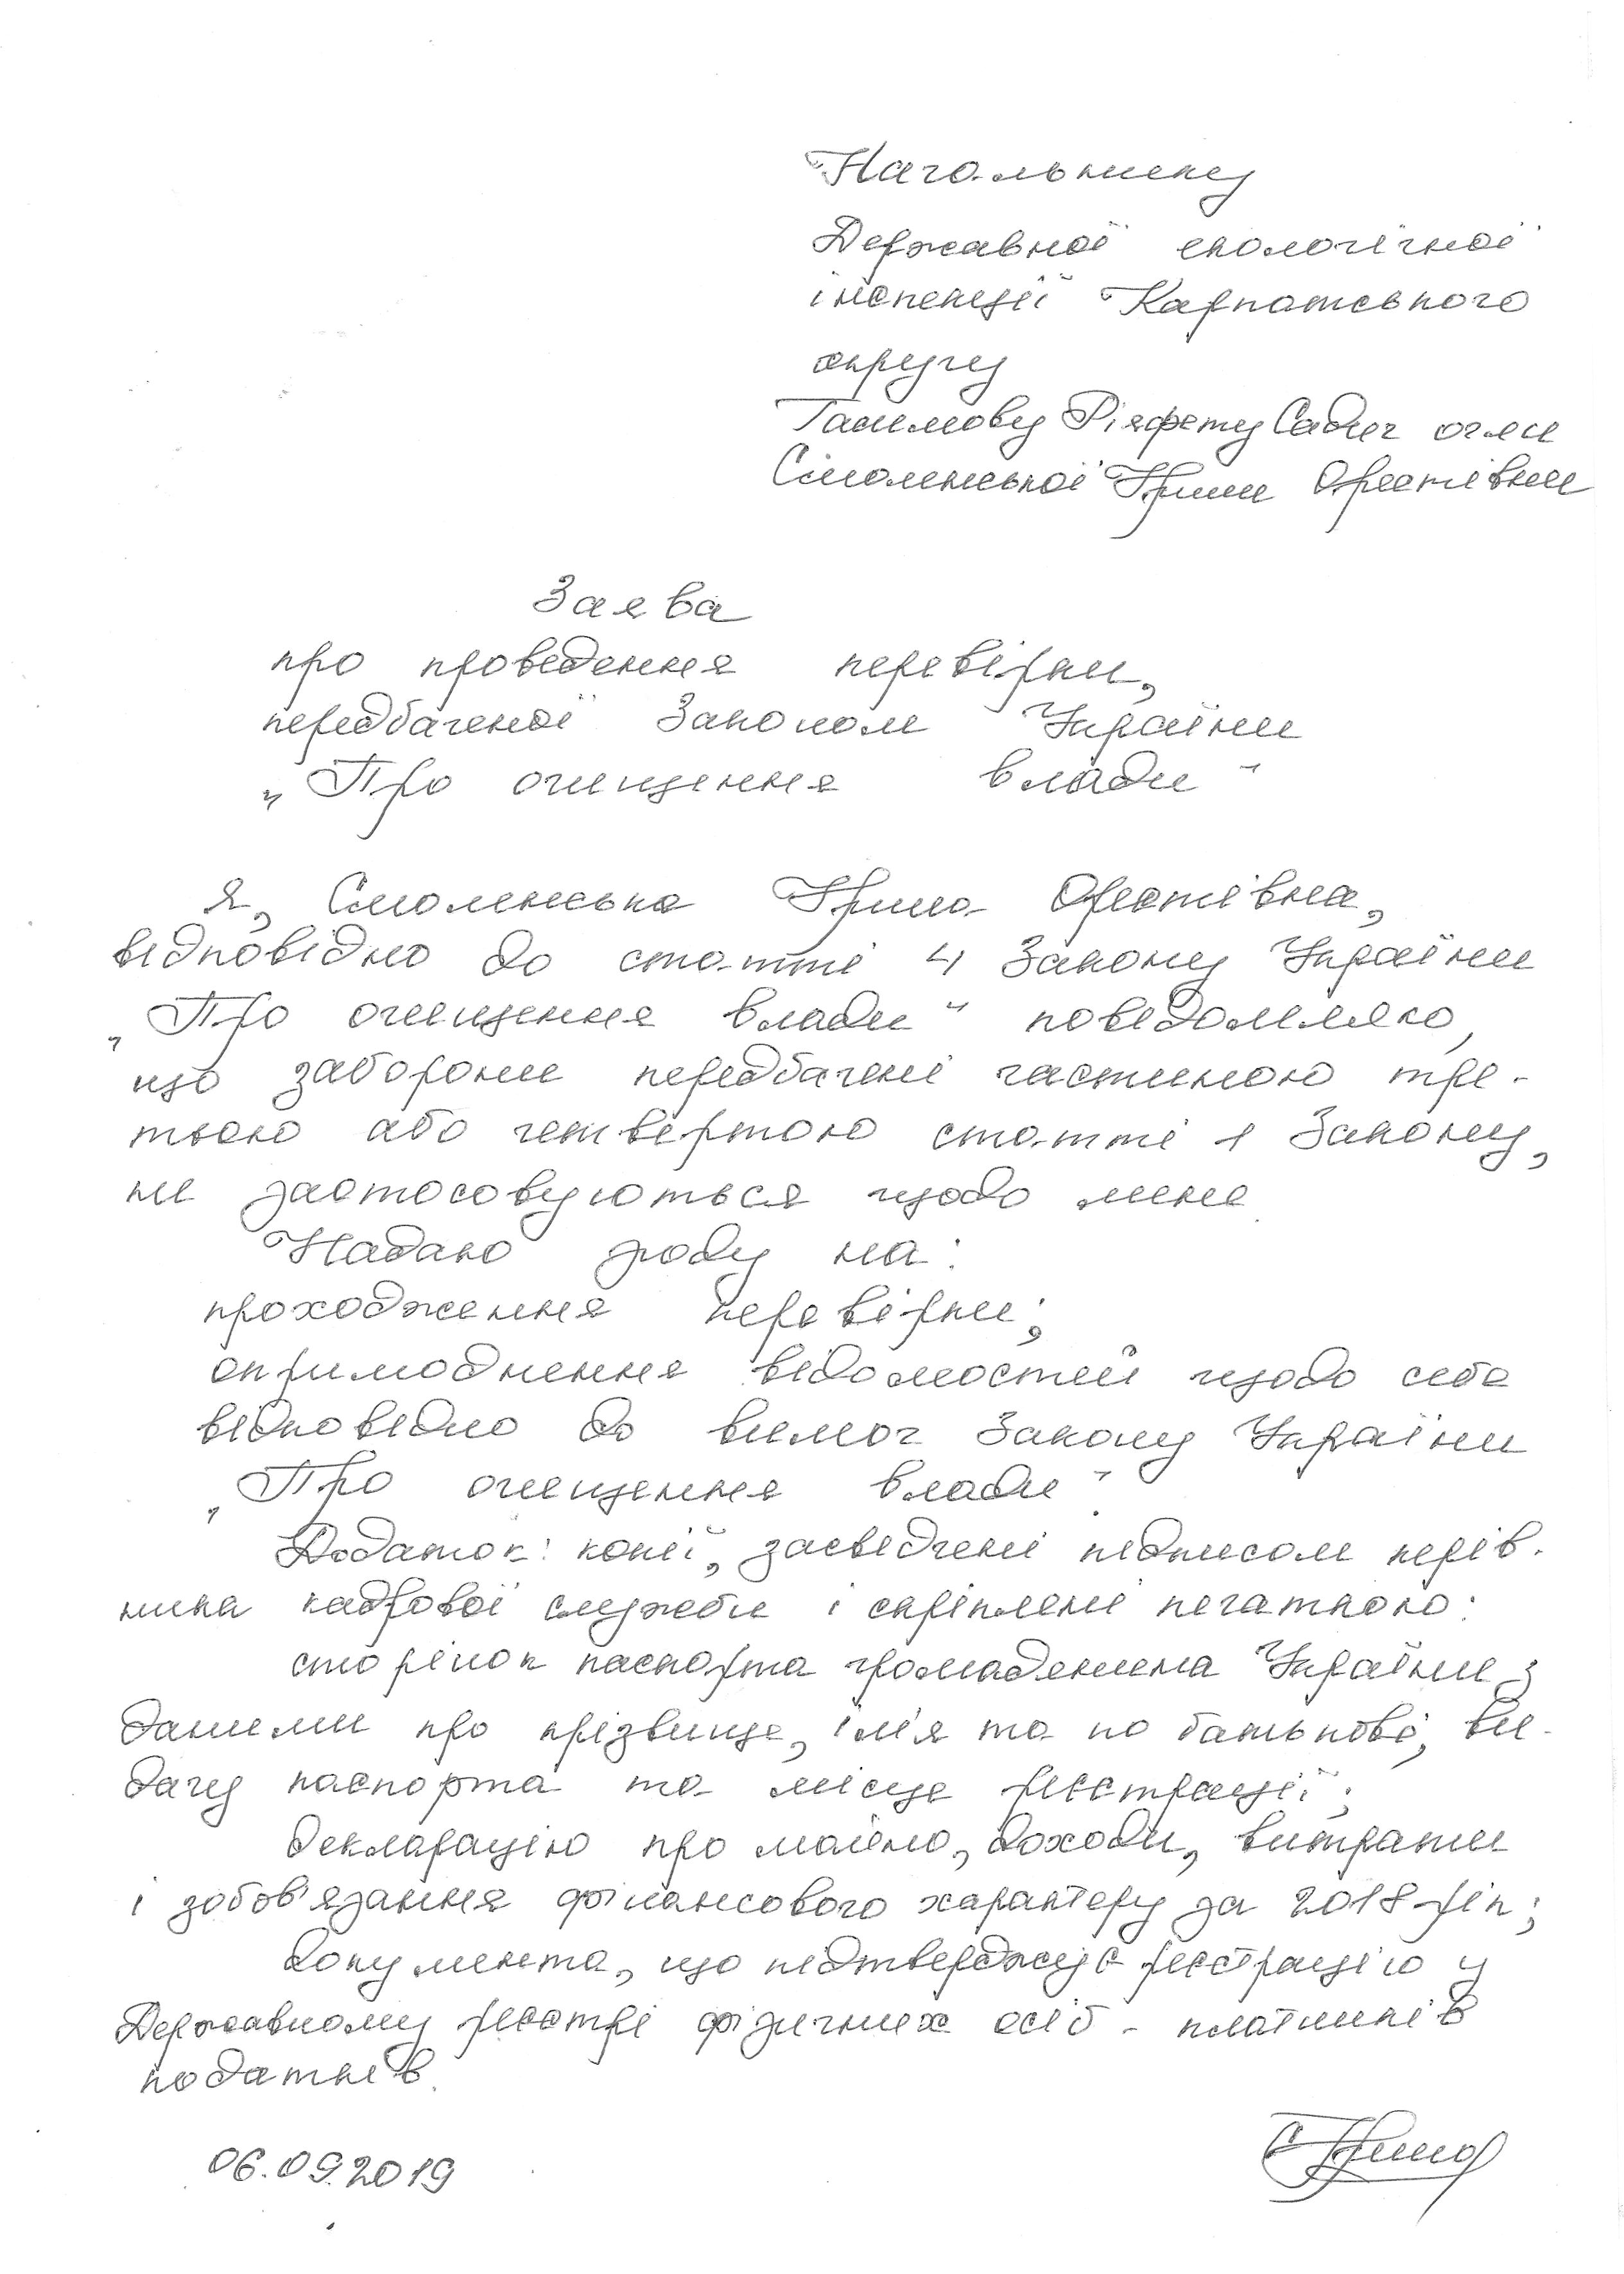 Начальнику
Державної екологічної
інспекції Карпатського
округу
Гашимову Ріяфету Садиг огли
Смоленської Ірини Орестівни
Заява
про проведення перевірки,
передбаченої Законом України
„Про очищення влади“
Я, Смоленська Ірина Орестівна,
відповідно до статті 4 Закону України
„Про очищення влади“ повідомляю,
що заборони передбачені частиною тре-
тьою або четвертою статті 1 Закону,
не застосовуються щодо мене
Надаю згоду на:
проходження перевірки;
оприлюднення відомостей щодо себе
відповідно до вимог Закону України
„Про очищення влади“
Додаток: копії, засвідчені підписом керів-
ника кадрової служби і скріплені печаткою:
сторінок паспорта громадянина України з
даними про прізвище, ім'я та по батькові, ви-
дачу паспорта та місце реєстрації;
декларацію про майно, доходи, витрати
і зобов'язання фінансового характеру за 2018 рік;
документа, що підтверджує реєстрацію у
Державному реєстрі фізичних осіб - платників
податків
06.09.2019